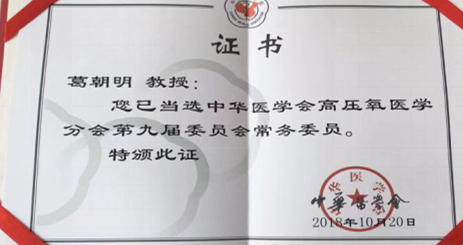 证书
葛朝明 教授：
您已当选中华医学会高压氧医学
分会第九届委员会常务委员。
特颁此证
中华医学会
2018年10月20日